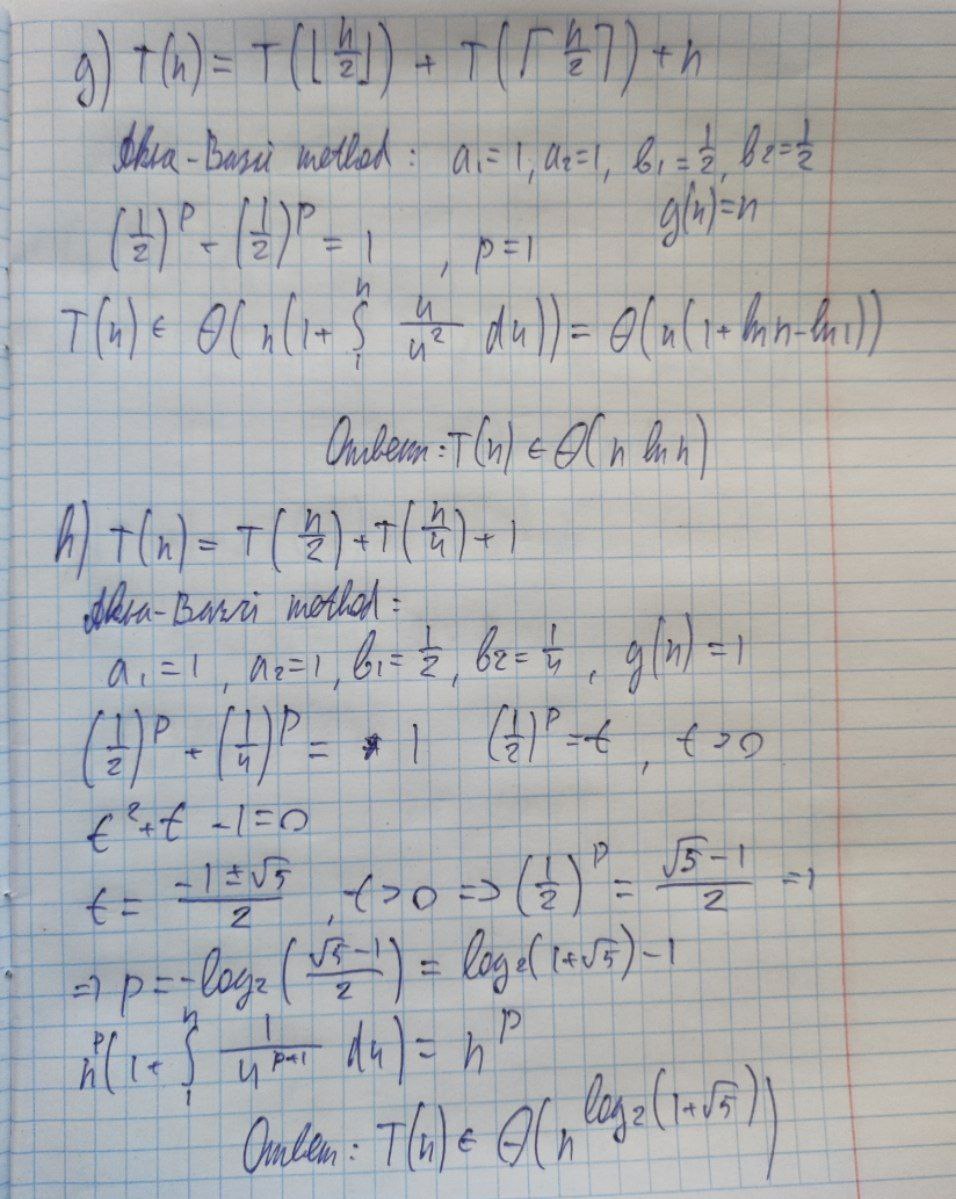 g) T(n) = T(⌊n/2⌋) + T(⌈n/2⌉) + n
Akra-Bazzi method: a₁=1, a₂=1, b₁=1/2, b₂=1/2
g(n)=n
(1/2)^p + (1/2)^p = 1 , p=1
T(n) ∈ Θ(n(1+∫₁ⁿ u/u² du)) = Θ(n(1+ln n-ln 1))
Ответ: T(n) ∈ Θ(n ln n)
h) T(n) = T(n/2)+T(n/4)+1
Akra-Bazzi method:
a₁=1, a₂=1, b₁=1/2, b₂=1/4, g(n)=1
(1/2)^p + (1/4)^p = 1 (1/2)^p = t, t>0
t²+t-1=0
t = (-1±√5)/2, t>0 => (1/2)^p = (√5-1)/2 =>
=> p=-log₂((√5-1)/2) = log₂(1+√5)-1
n^p(1+∫₁ⁿ 1/u^(p+1) du) = n^p
Ответ: T(n) ∈ Θ(n^(log₂(1+√5)))